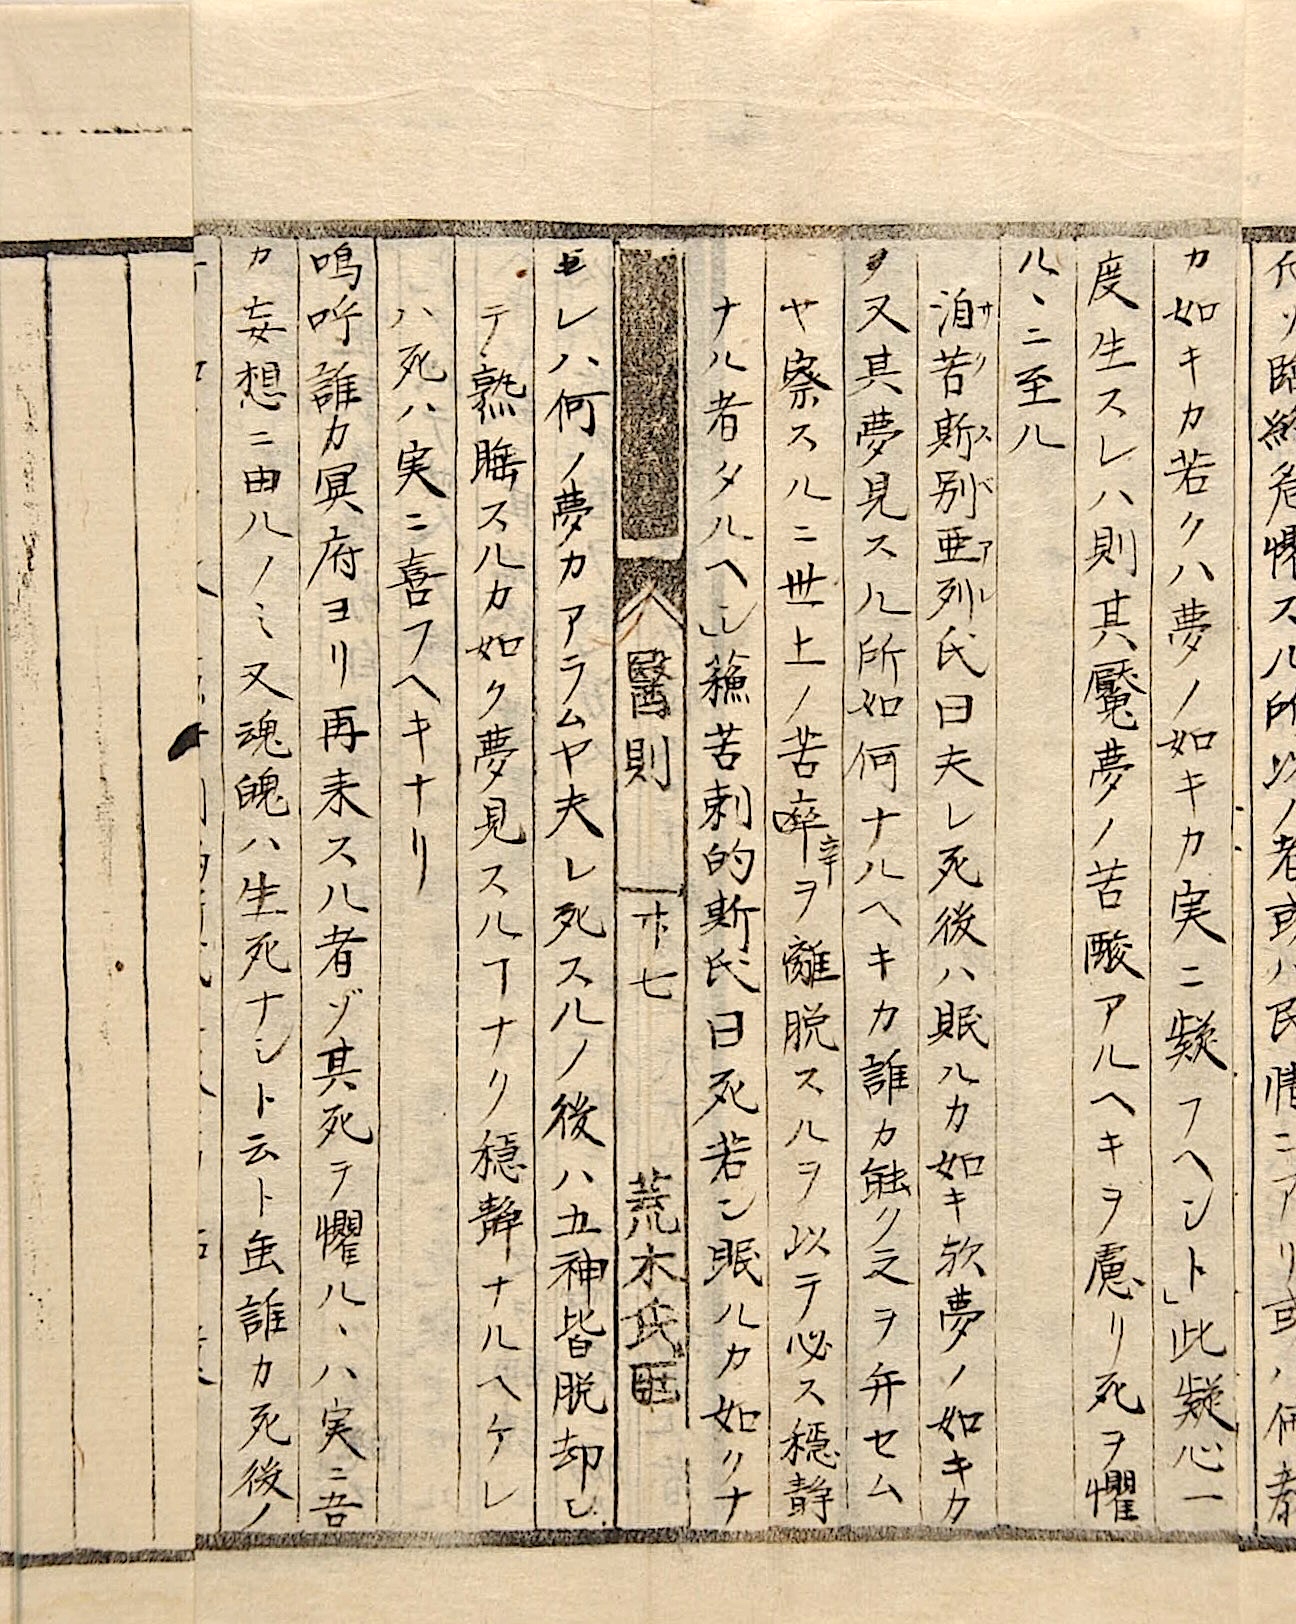 何ソ臨終危懼スル所以ノ者或ハ民情ニアリ或ハ何者
カ如キカ若クハ夢ノ如キカ実ニ疑フヘシト」此疑心一
度生スレハ則其魘夢ノ苦酸アルヘキヲ慮リ死ヲ懼
ル丶ニ至ル
洎苦斯別亜列氏曰夫レ死後ハ眠ルカ如キ欤夢ノ如キカ
サクスベアル
ヲ又其夢見スル所如何ナルヘキカ誰カ能ク之ヲ弁セム
ヤ察スルニ世上ノ苦啐ヲ離脱スルヲ以テ必ス穏静
辛
ナル者タルヘシ」蘓苦剌的斯氏曰死若シ眠ルカ如クナ
醫則
廿七
荒木氏
レハ何ノ夢カアラムヤ夫レ死スルノ後ハ五神皆脱却シ
テ熟睡スルカ如ク夢見スルヿナク穏静ナルヘケレ
ハ死ハ実ニ喜フヘキナリ
嗚呼誰カ冥府ヨリ再来スル者ゾ其死ヲ懼ル丶ハ実ニ吾
カ妄想ニ由ルノミ又魂魄ハ生死ナシト云ト虽誰カ死後ノ